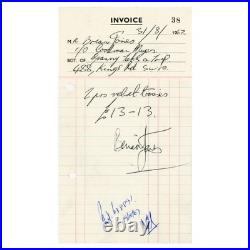 INVOICE 38
31/8/ 1967
MR Brian Jones
C/O Cordman Pipes
BOT OF Granny Takes a Trip
488, Kings Rd SW10.
2 prs velvet trousers
£13-13.
Brian Jones